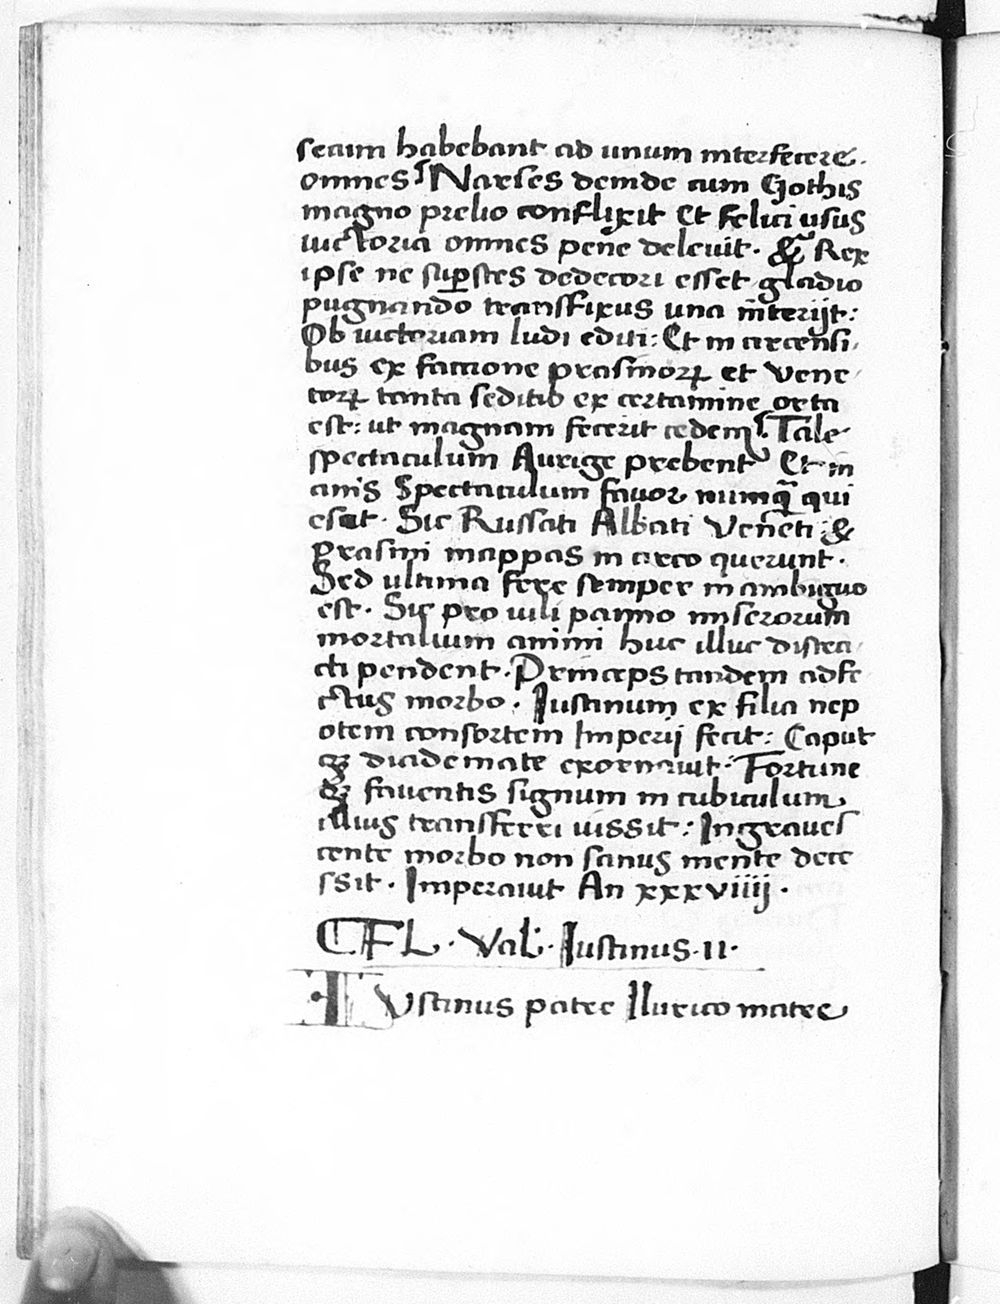 secum habebant ad unum interfecere.
omnes Narses deinde cum Gothis
magno prelio conflixit Et felici usus
victoria omnes pene delevit. & Rex
ipse ne sup̲stes dedecori esset gladio
pugnando transfixus una interijt:
Ob victoriam ludi editi: Et in circensi
bus ex factione prasinoꝝ et Vene
toꝝ tanta seditio ex certamine orta
est: ut magnam fecerit cedem. Tale
spectaculum Aurige prebent Et in
anis Spectaculum favor numq̃ qui
escit. Sic Russati Albati Veneti &
Prasini mappas in circo querunt.
Sed ultima fere semper in ambiguo
est. Sic pro vili panno miserorum
mortalium animi huc illuc distra
cti pendent. Princeps tandem adfe
ctus morbo. Iustinum ex filia nep
otem consortem Imperij fecit: Caput
qꝫ diademate exornavit: Fortune
qꝫ faventis signum in cubiculum
illius transferri iussit: Ingraves
cente morbo non sanus mente dece
ssit. Imperavit An xxxviiij.
FL. Val. Iustinus. II.
IVstinus patre Illirico matre